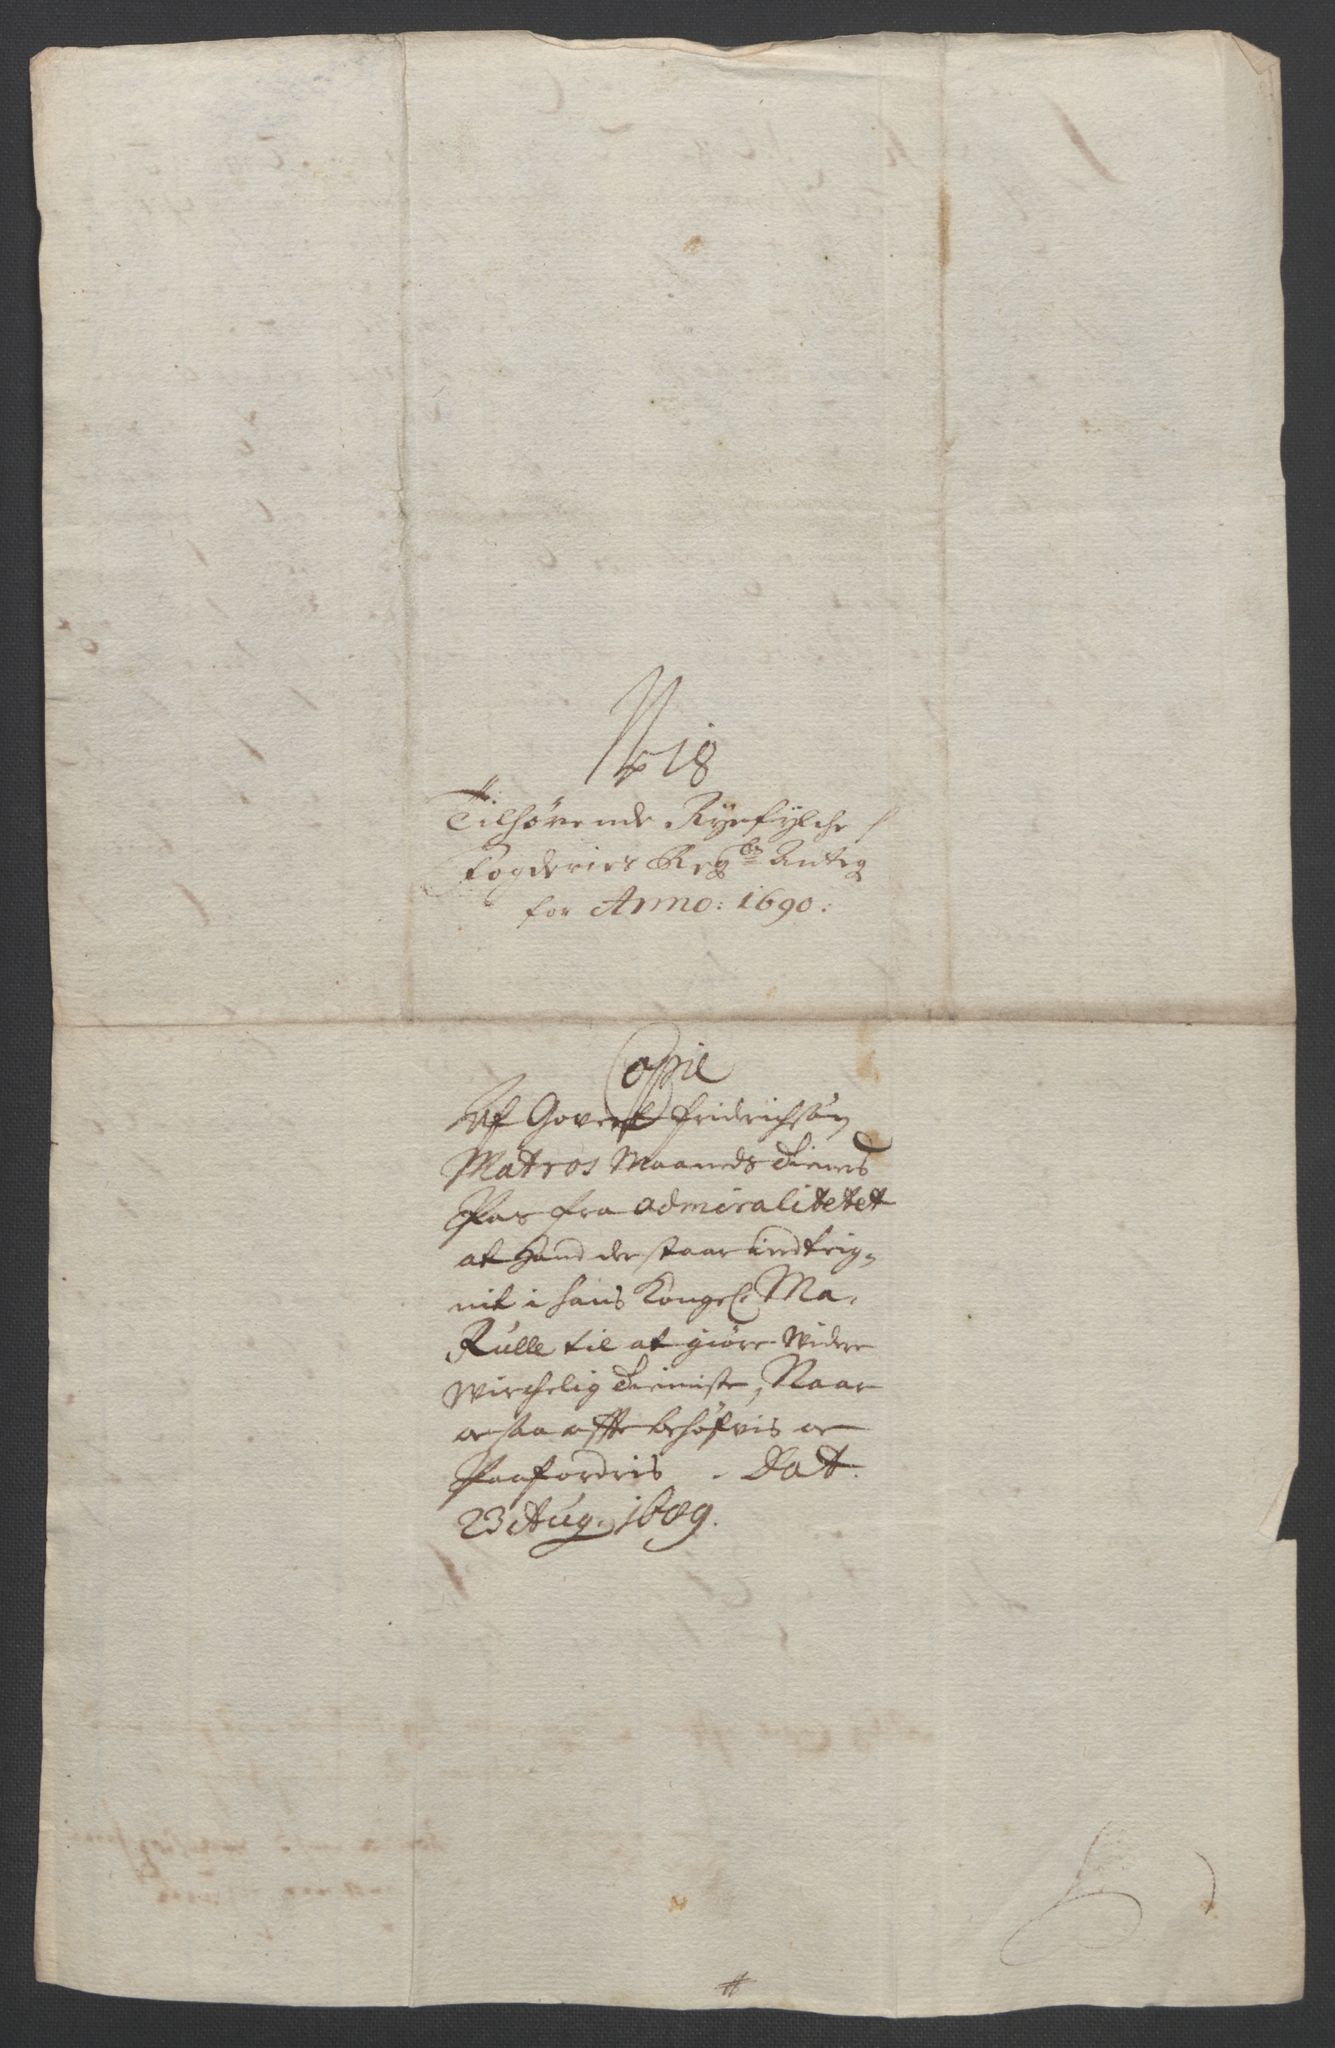 No 18
Tilhørende Ryefylche
Fogderies Regsb Anteg
for Anno: 1690:
Copie
Af Govert Fridrichsøn
Matros Maaneds Tienes
Pas fra Admiralitetet
at hand der staar indteig=
nit i hans Kongel: Ma:
Rulle til at giøre Widere
Wirchelig Tieniste, Naar
paafordris. Dat.
23 Aug. 1689.